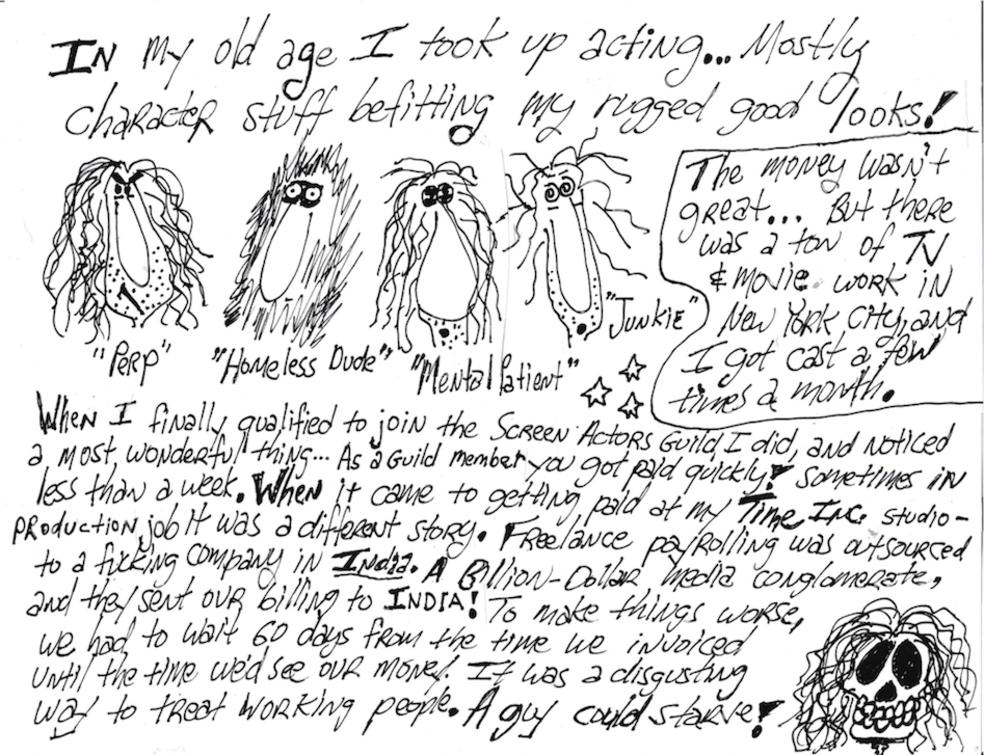 IN my old age I took up acting... Mostly
character stuff befitting my rugged good looks!
"Perp"
"Homeless Dude"
"Mental Patient"
"Junkie"
The money wasn't
great... But there
was a ton of TV
& movie work in
New York City, and
I got cast a few
times a month.
When I finally qualified to join the Screen Actors Guild, I did, and noticed
a most wonderful thing... As a Guild member you got paid quickly! Sometimes in
less than a week. When it came to getting paid at my Time Inc. studio-
production job it was a different story. Freelance payrolling was outsourced
to a fucking company in India. A Billion-Dollar media conglomerate,
and they sent our billing to INDIA! To make things worse,
we had to wait 60 days from the time we invoiced
until the time we'd see our money. It was a disgusting
way to treat working people. A guy could starve!